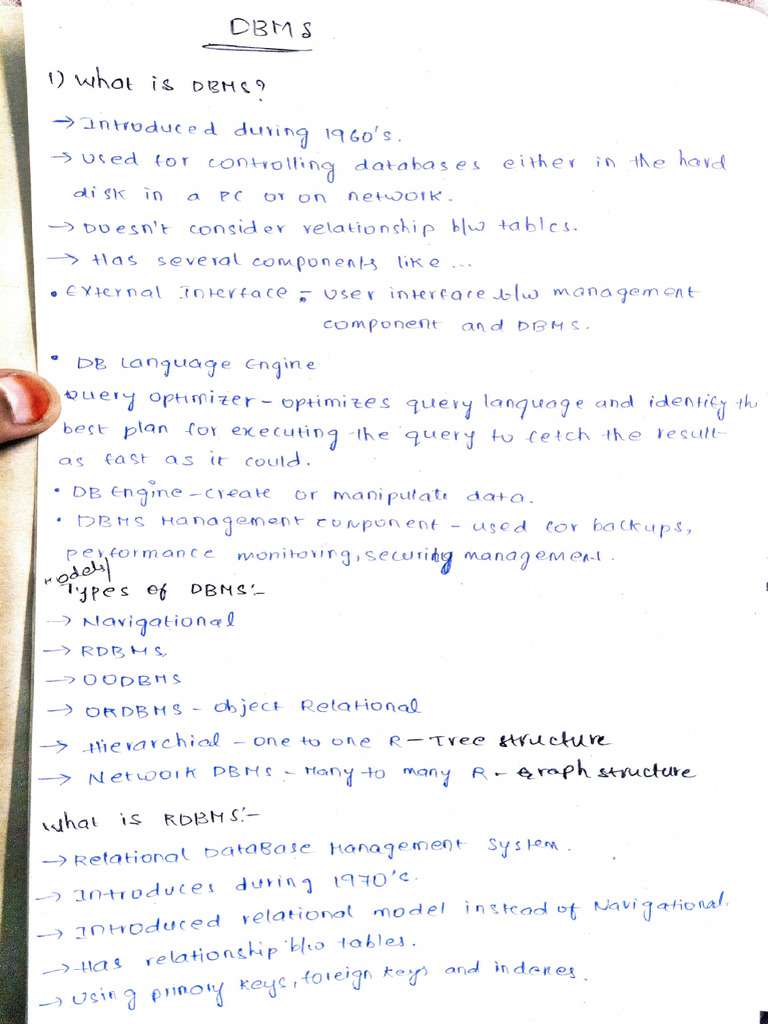 DBMS
1) What is DBMS?
→ Introduced during 1960's.
→ Used for controlling databases either in the hard
disk in a PC or on network.
→ Doesn't consider relationship b/w tables.
→ Has several components like ...
• External Interface - User interface b/w management
component and DBMS.
• DB Language Engine
Query optimizer - optimizes query language and identify the
best plan for executing the query to fetch the result
as fast as it could.
• DB Engine - create or manipulate data.
• DBMS Management component - used for backups,
performance monitoring, security management.
Models/
Types of DBMS:-
→ Navigational
→ RDBMS
→ OODBMS
→ ORDBMS - Object Relational
→ Hierarchial - one to one R - Tree structure
→ Network DBMS - Many to many R - Graph structure
What is RDBMS:-
→ Relational DataBase Management System.
→ Introduces during 1970's.
→ Introduced relational model instead of Navigational.
→ Has relationship b/w tables.
→ Using primary keys, foreign keys and indexes.